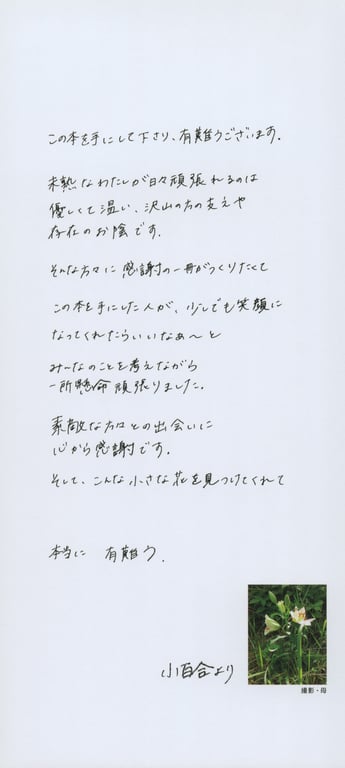 この本を手にして下さり、有難うございます。
未熟なわたしが日々頑張れるのは
優しくて温い、沢山の方の支えや
存在のお陰です。
そんな方々に感謝の一冊がつくりたくて
この本を手にした人が、少しでも笑顔に
なってくれたらいいなぁ〜と
み〜んなのことを考えながら
一所懸命頑張りました。
素敵な方々との出会いに
心から感謝です。
そして、こんな小さな花を見つけてくれて
本当に 有難う。
小百合より
撮影・母